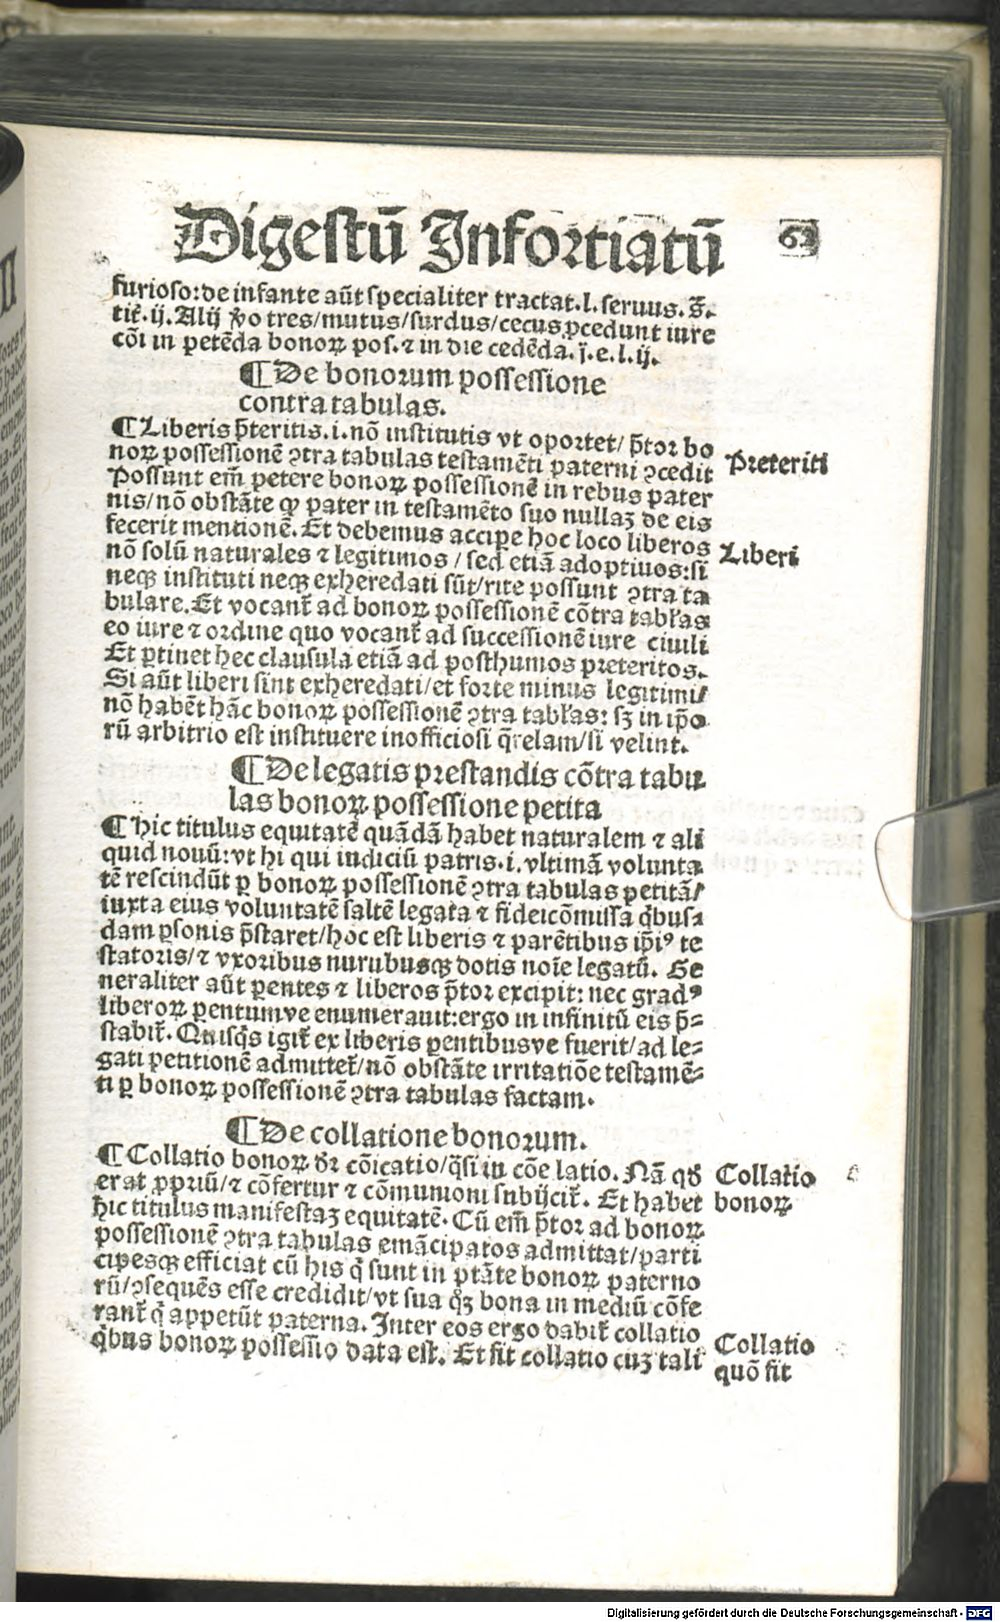 Digestū Infortiatū 62
furioso: de infante aūt specialiter tractat. l. seruus. s̄.
tit̄. ij. Alij ꝟo tres/mutus/surdus/cecus ꝓcedunt iure
cōi in petēda bonoꝝ pos. ⁊ in die cedēda. j̄. e. l. ij.
¶ De bonorum possessione
contra tabulas.
¶ Liberis p̄teritis. i. nō institutis vt oportet/ p̄tor bo
noꝝ possessionē ꝯtra tabulas testamēti paterni ꝯcedit
Possunt em̄ petere bonoꝝ possessionē in rebus pater
nis/nō obstāte ꝙ pater in testamēto suo nullaꝫ de eis
fecerit mentionē. Et debemus accipe hoc loco liberos
nō solū naturales ⁊ legitimos / sed etiā adoptiuos: si
neqꝫ instituti neqꝫ exheredati sūt/rite possunt ꝯtra ta
bulare. Et vocant̄ ad bonoꝝ possessionē cōtra tabl̄as
eo iure ⁊ ordine quo vocant̄ ad successionē iure ciuili
Et ꝑtinet hec clausula etiā ad posthumos preteritos.
Si aūt liberi sint exheredati/et forte minus legitimi/
nō habēt hāc bonoꝝ possessionē ꝯtra tabl̄as: sꝫ in ip̄o
rū arbitrio est instituere inofficiosi q̄relam/si velint.
Preteriti
Liberi
¶ De legatis prestandis cōtra tabu
las bonoꝝ possessione petita
¶ Hic titulus equitatē quādā habet naturalem ⁊ ali
quid nouū: vt hi qui iudiciū patris. i. vltimā volunta
tē rescindūt ꝑ bonoꝝ possessionē ꝯtra tabulas petitā/
iuxta eius voluntatē saltē legata ⁊ fideicōmissa q̄busꝫ
dam ꝑsonis p̄staret/hoc est liberis ⁊ parētibus ip̄iꝰ te
statoris/⁊ vxoribus nurubusqꝫ dotis noīe legatū. Ge
neraliter aūt ꝑentes ⁊ liberos p̄tor excipit: nec gradꝰ
liberoꝝ ꝑentumve enumerauit: ergo in infinitū eis p̄=
stabit̄. Quisq̄s igit̄ ex liberis ꝑentibusve fuerit/ad le=
gati petitionē admittet̄/nō obstāte irritatiōe testamē=
ti ꝑ bonoꝝ possessionē ꝯtra tabulas factam.
¶ De collatione bonorum.
¶ Collatio bonoꝝ dr̄ cōicatio/q̄si in cōe latio. Nā qđ
erat ꝓpriū/⁊ cōfertur ⁊ cōmunioni subijcit̄. Et habet
hic titulus manifestaꝫ equitatē. Cū em̄ p̄tor ad bonoꝝ
possessionē ꝯtra tabulas emācipatos admittat/parti
cipesqꝫ efficiat cū his q̄ sunt in p̄tāte bonoꝝ paterno
rū/ꝯsequēs esse credidit/vt sua qꝫ bona in mediū cōfe
rant̄ q̄ appetūt paterna. Inter eos ergo dabit̄ collatio
q̄bus bonoꝝ possessio data est. Et fit collatio cuꝫ tali
Collatio
bonoꝝ
Collatio
quō fit
Digitalisierung gefördert durch die Deutsche Forschungsgemeinschaft - DFG